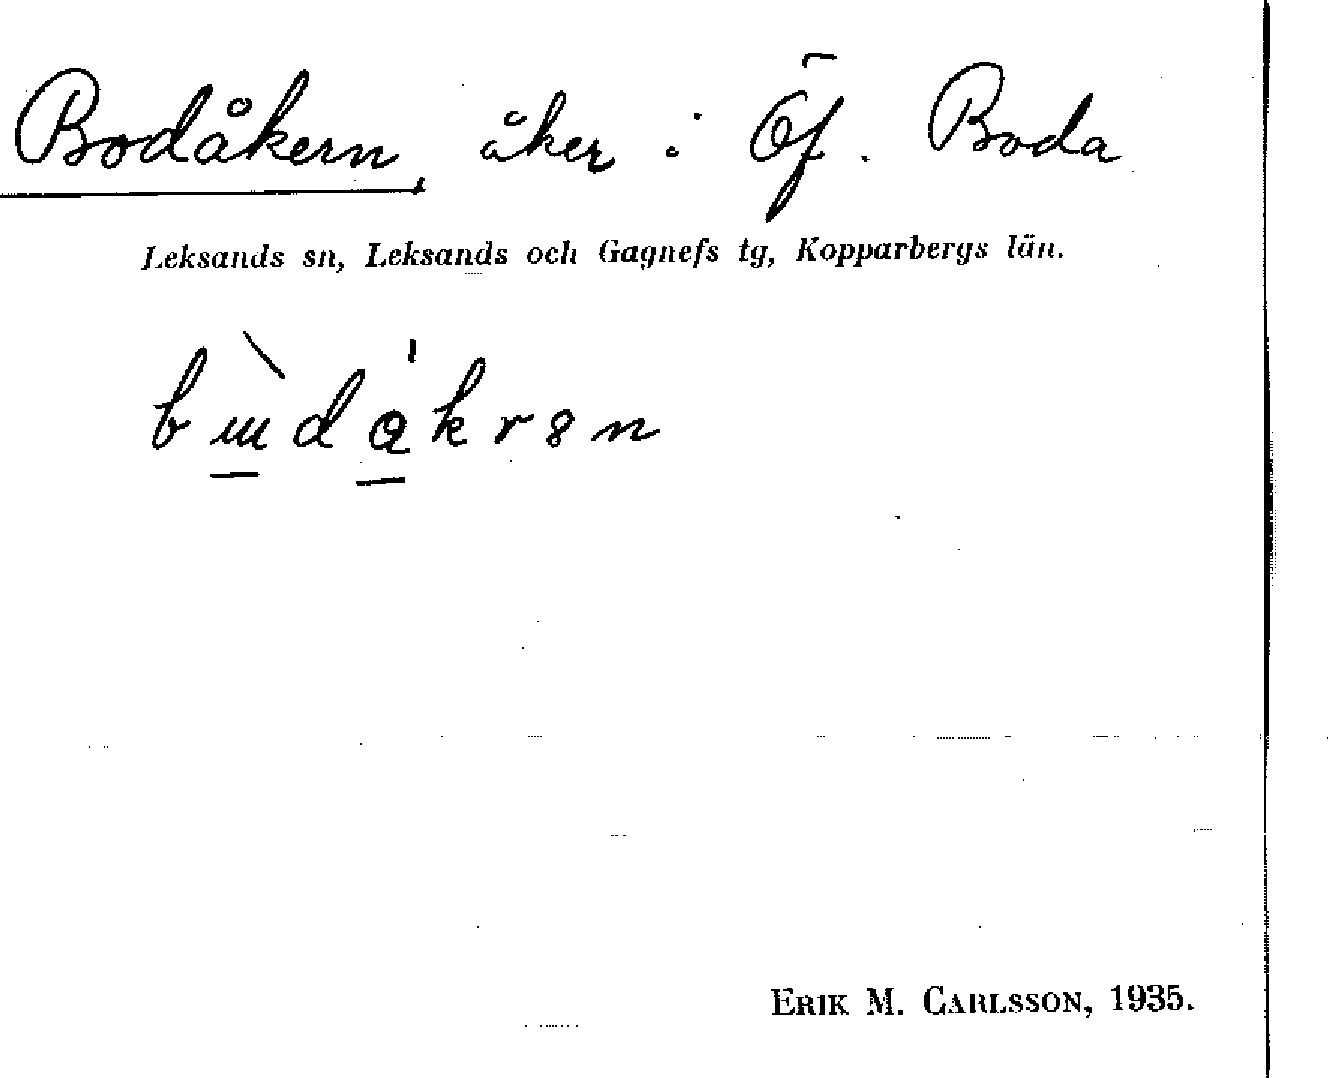 Bodåkern, åker i Öf. Boda
Leksands sn, Leksands och Gagnefs tg, Kopparbergs län.
ERIK M. CARLSSON, 1935.